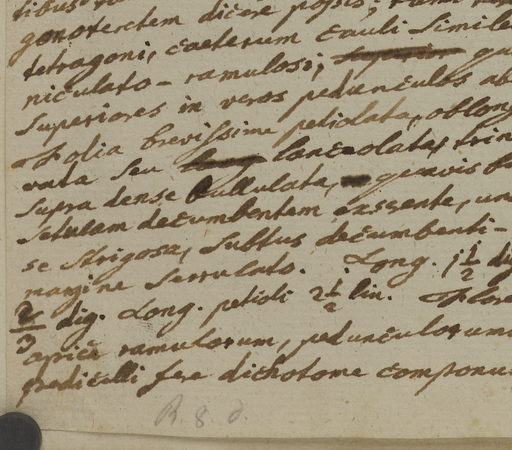 gonoterctem dicere possis, rami
tetragoni, caeterum cauli simile
niculato-ramulosi;
superiores in veros pedunculos ab
Folia brevissime petiolata, oblong
vata seu lanceolata, trin
supra dense bullulata, quavis b
setulam decumbentem exserente, un
se strigosa, subtus decumbenti-
margine serrulato. Long. 1 1/2 di
2/3 dig. Long. petioli 2 1/2 lin. Flore
apice ramulorum, pedunculorum
pedicelli fere dichotome componu
R. 8. d.